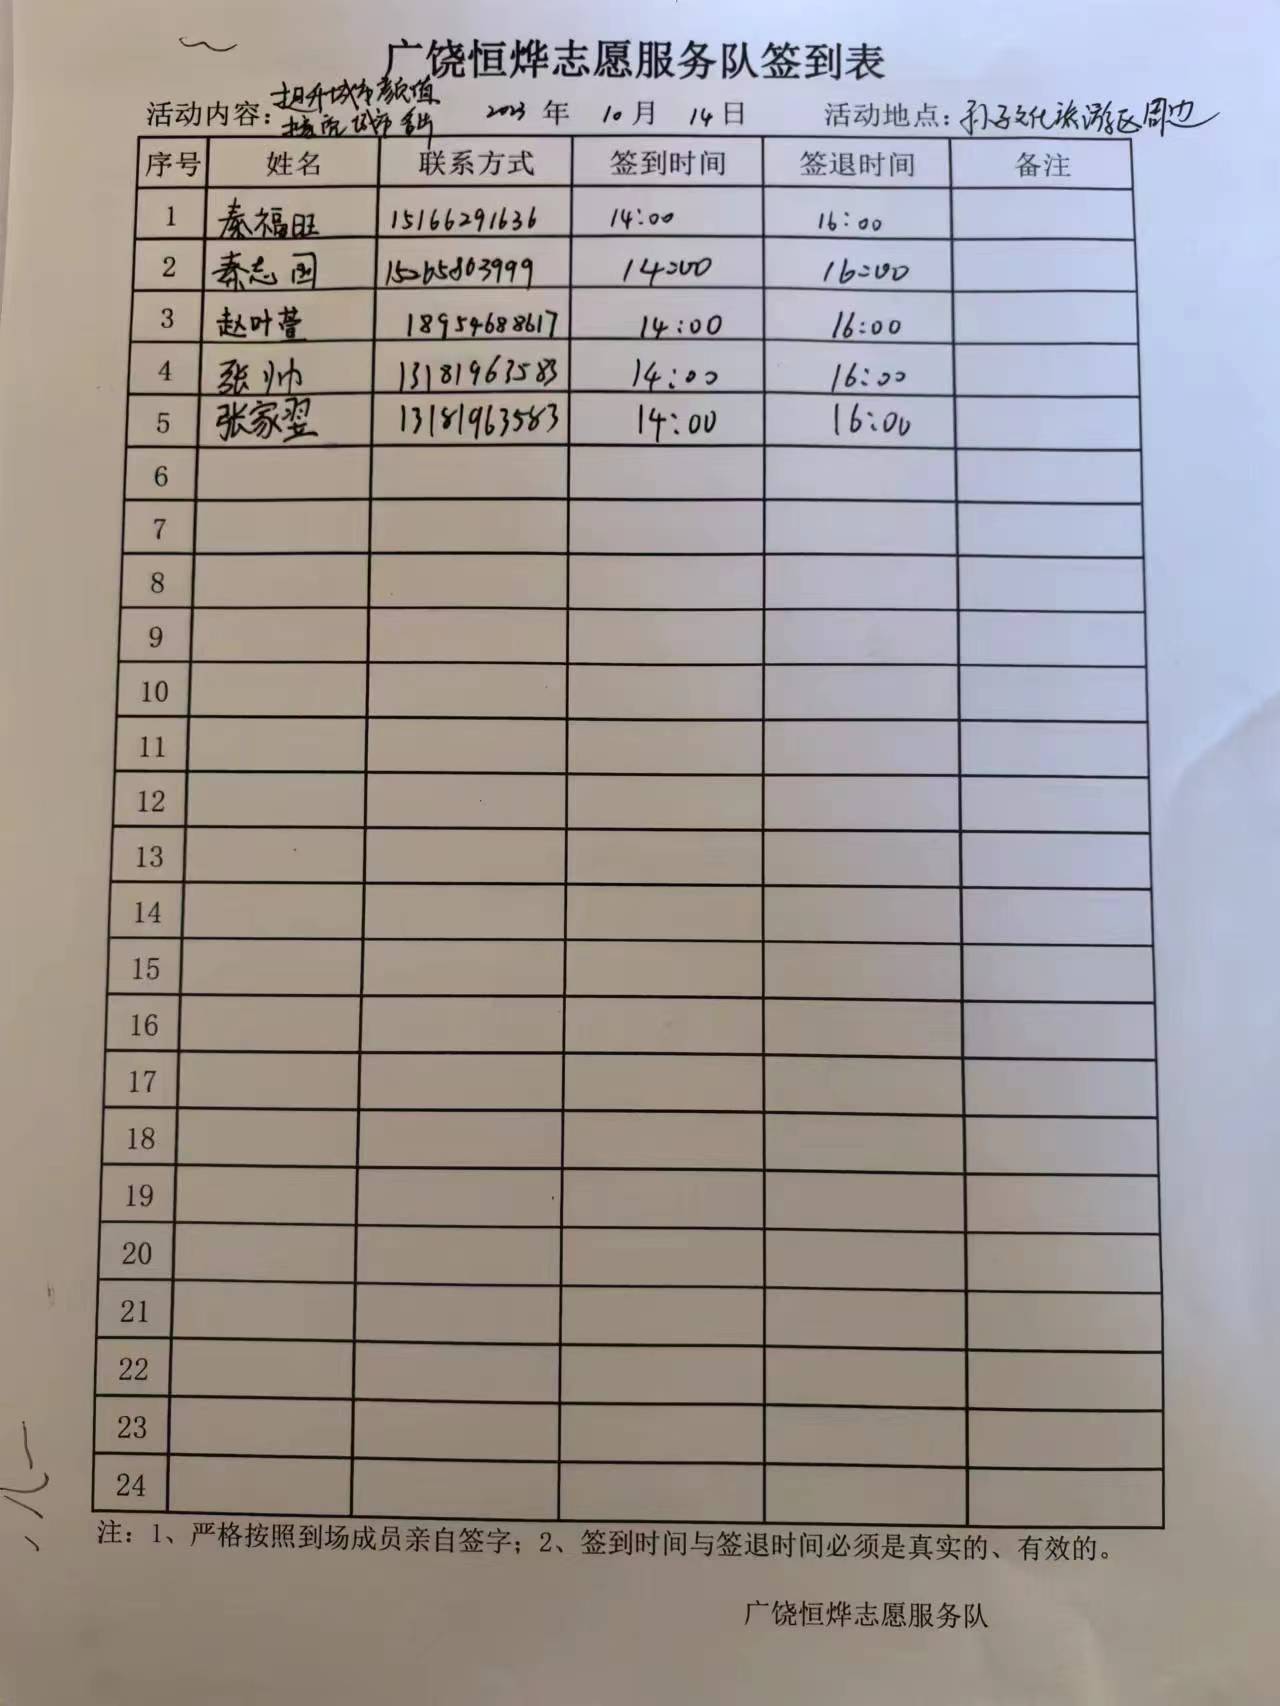 广饶恒烨志愿服务队签到表
活动内容：提升城市颜值 2023 年 10 月 14 日 活动地点：孙子文化旅游区周边
城市
序号 姓名 联系方式 签到时间 签退时间 备注
1 秦福旺 15166291636 14:00 16:00
2 秦志国 15265803999 14:00 16:00
3 赵叶萱 18954688617 14:00 16:00
4 张帅 13181963583 14:00 16:00
5 张家翌 13181963583 14:00 16:00
6
7
8
9
10
11
12
13
14
15
16
17
18
19
20
21
22
23
24
注：1、严格按照到场成员亲自签字；2、签到时间与签退时间必须是真实的、有效的。
广饶恒烨志愿服务队